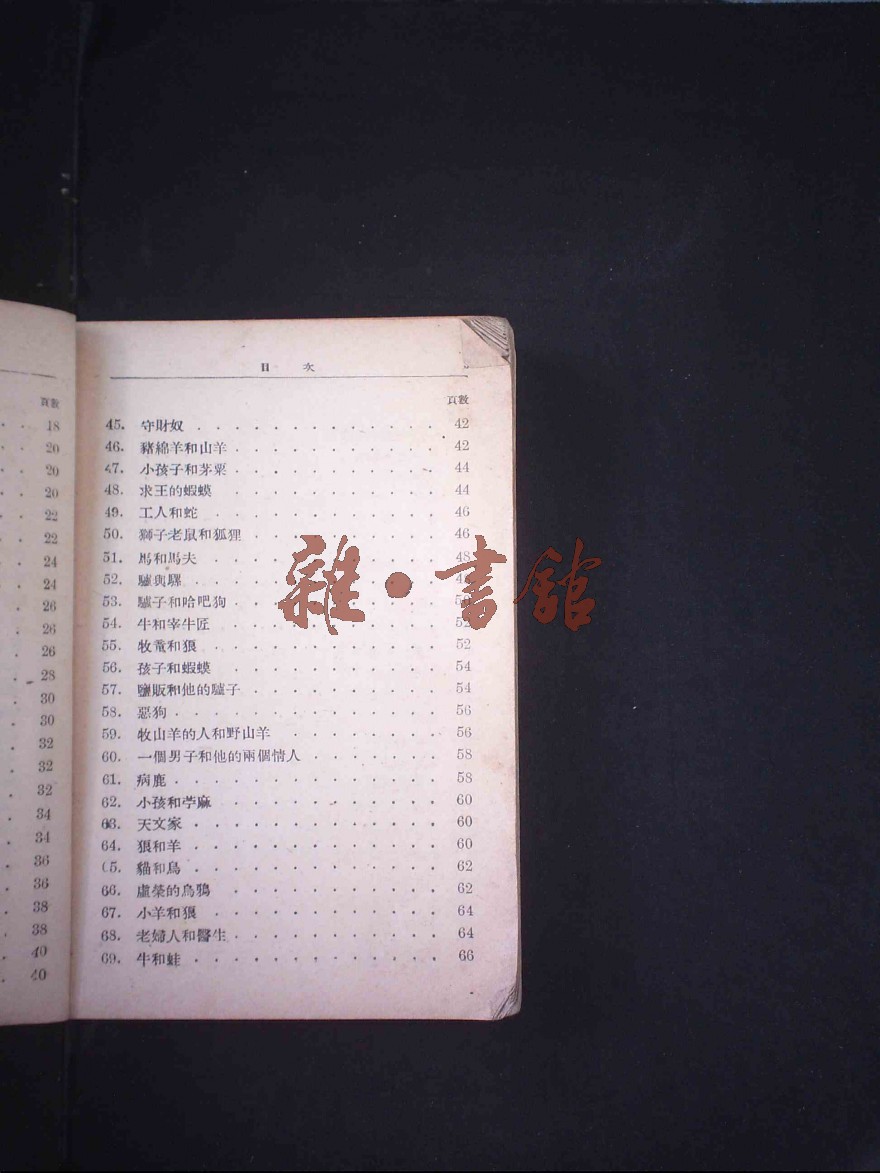 頁數
18
20
20
20
22
22
24
24
26
26
26
28
30
30
32
32
32
34
34
36
36
38
38
40
40
目 次
頁數
45. 守財奴 42
46. 豬綿羊和山羊 42
47. 小孩子和茅粟 44
48. 求王的蝦蟆 44
49. 工人和蛇 46
50. 獅子老鼠和狐狸 46
51. 馬和馬夫 48
52. 驢與騾
53. 驢子和哈吧狗
54. 牛和宰牛匠 52
55. 牧童和狼 52
56. 孩子和蝦蟆 54
57. 鹽販和他的驢子 54
58. 惡狗 56
59. 牧山羊的人和野山羊 56
60. 一個男子和他的兩個情人 58
61. 病鹿 58
62. 小孩和苧麻 60
63. 天文家 60
64. 狼和羊 60
65. 貓和鳥 62
66. 虛榮的烏鴉 62
67. 小羊和狼 64
68. 老婦人和醫生 64
69. 牛和蛙 66
雜·書館